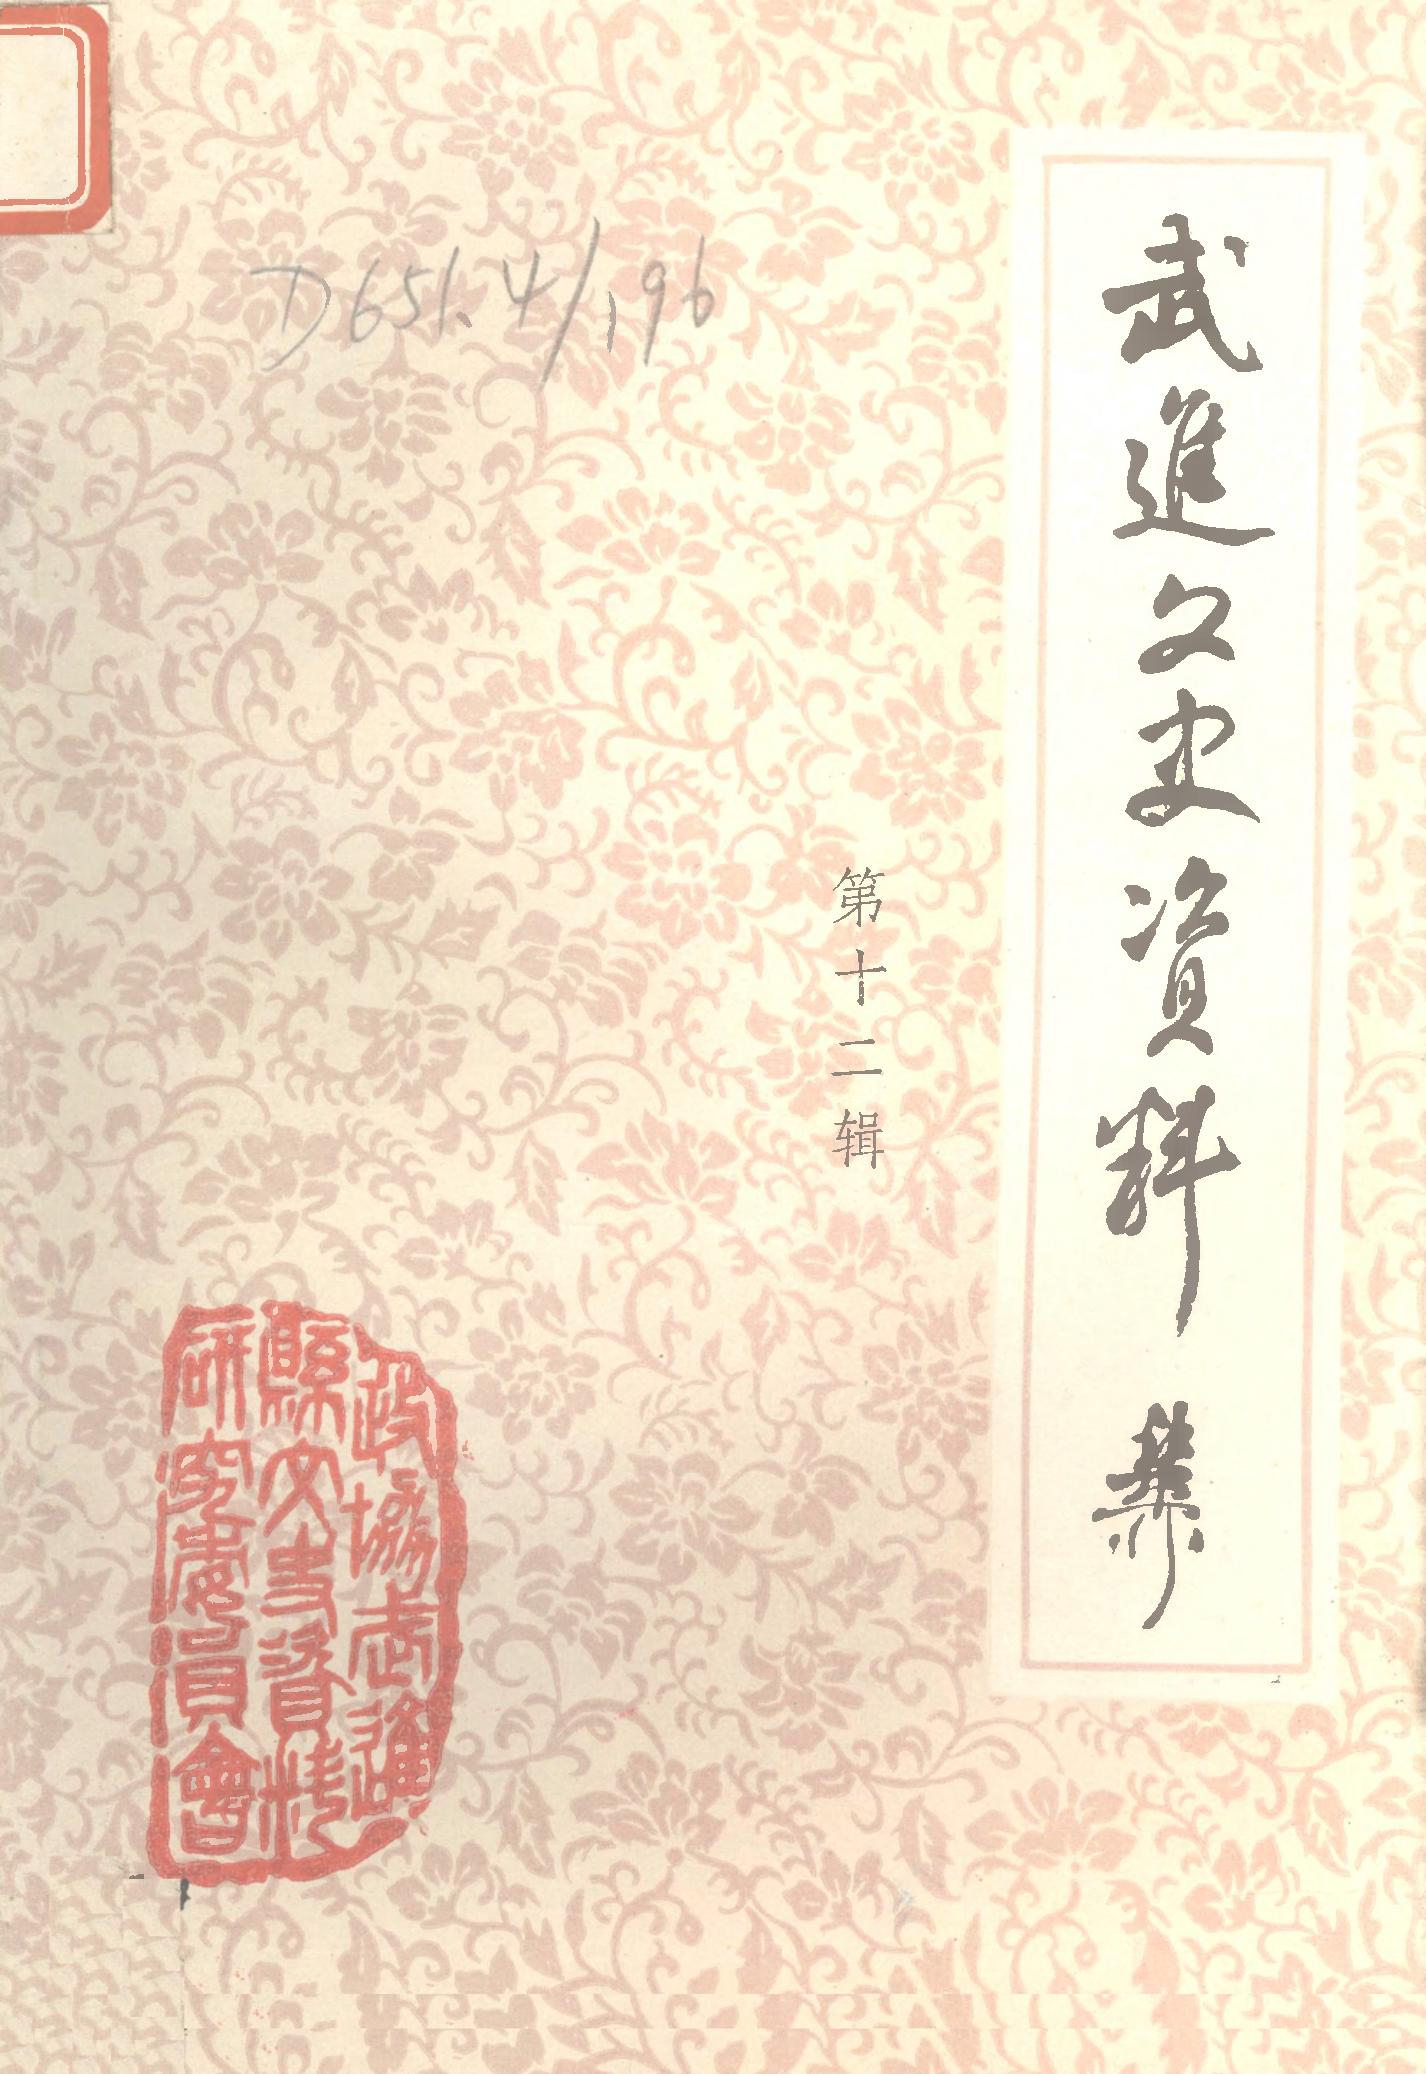 武進文史資料
第十二辑
D651.4/196
政協武進
縣文史資料
研究委員會